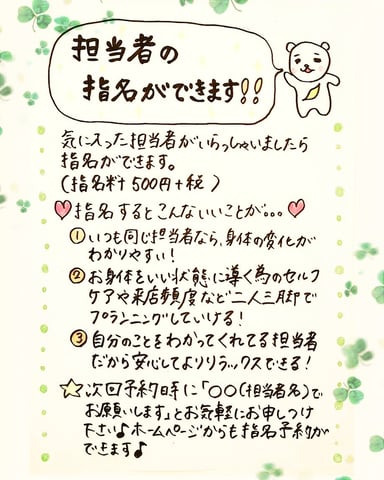 担当者の
指名ができます!!
気に入った担当者がいらっしゃいましたら
指名ができます。
(指名料500円+税)
指名するとこんないいことが…
① いつも同じ担当者なら、身体の変化が
わかりやすい!
② お身体をいい状態に導く為のセルフ
ケアや来店頻度など二人三脚で
プランニングしていける!
③ 自分のことをわかってくれてる担当者
だから安心してよりリラックスできる!
☆次回予約時に「○○(担当者名)で
お願いします」とお気軽にお申しつけ
下さい♪ホームページからも指名予約が
できます♪